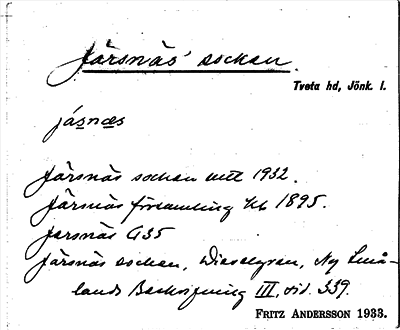 Järsnäs socken
Tveta hd, Jönk. l.
jásnæs
Järsnäs socken 1932.
Järsnäs församling 1895.
Järsnäs G35
Järsnäs socken, Wieselgren, Ny Små-
lands Beskrifning III, sid. 339.
FRITZ ANDERSSON 1933.